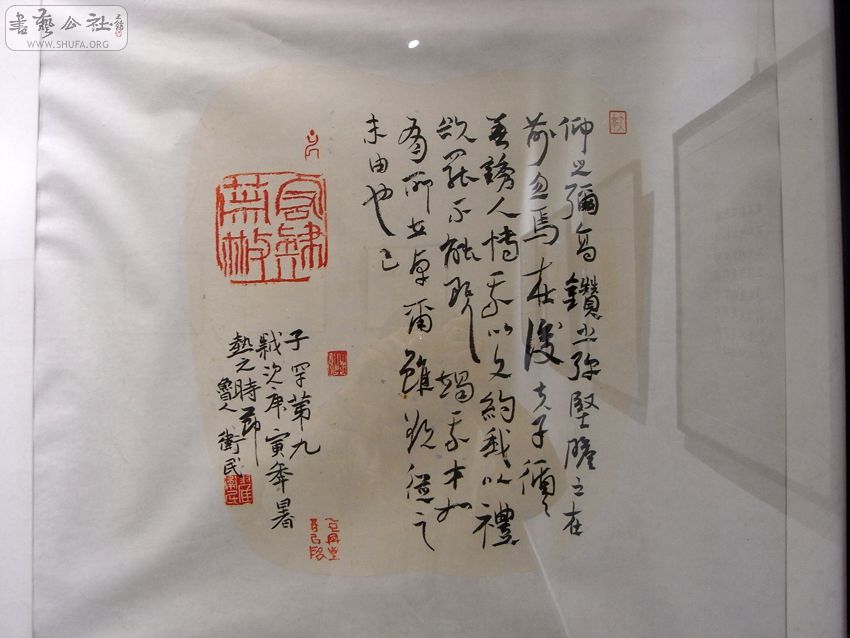 書藝公社
WWW.SHUFA.ORG
仰之彌高鑽之弥堅瞻之在
前忽焉在後夫子循〻
善誘人博我以文約我以禮
欲罷不能既竭我才如
有所立卓爾雖欲從之
末由也已
子罕第九
歲次庚寅年暑
熱之時節
魯人衛民